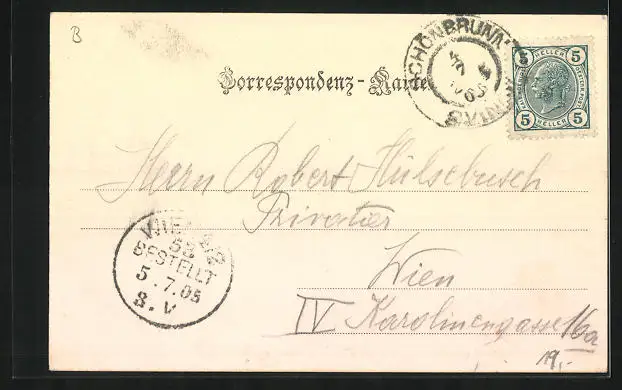 B
Correspondenz-Karte
SCHÖNBRUNN
SVINAR
5 HELLER 5
5 HELLER 5
Herrn Robert Hülsebusch
Privatier
Wien
IV Karolinengasse 16a
19,-
WIEN
53
BESTELLT
5.7.05
8.V